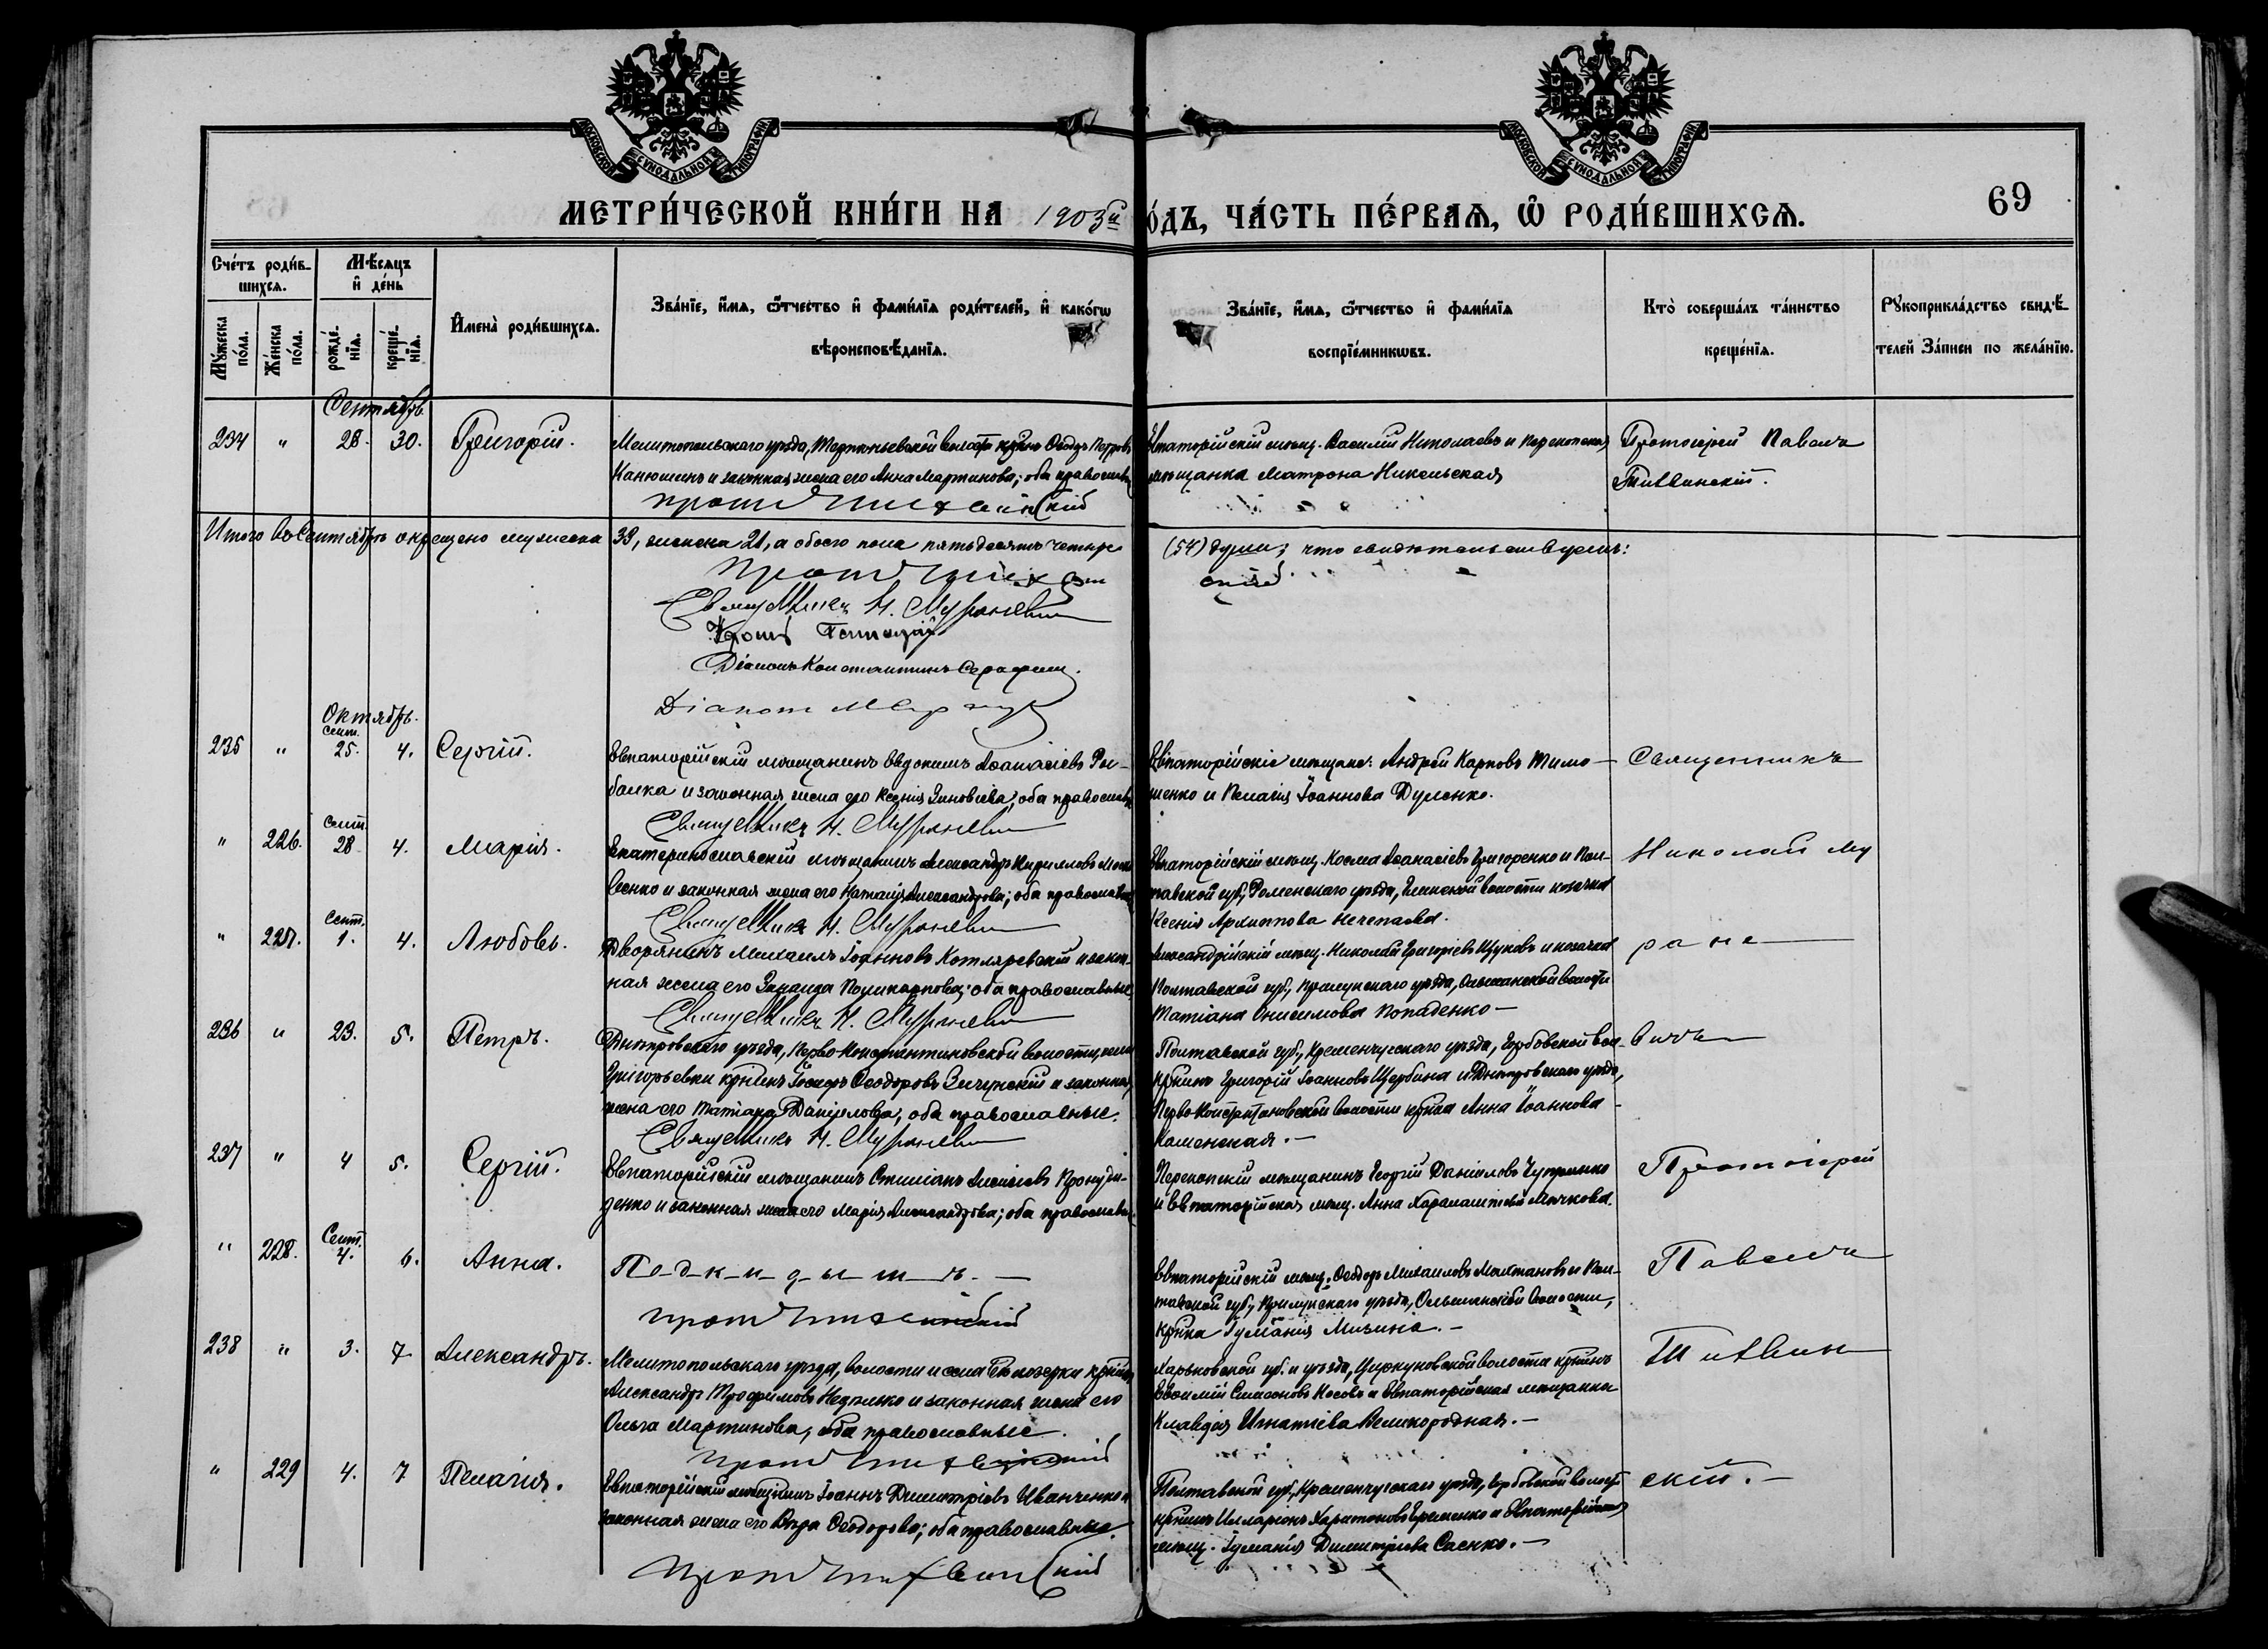 МОСКОВСКОЙ СѴНОДАЛЬНОЙ ТИПОГРАФІИ
МОСКОВСКОЙ СѴНОДАЛЬНОЙ ТИПОГРАФІИ
МЕТРИ́ЧЕСКОЙ КНИ́ГИ НА 1903й
О́ДЪ, ЧА́СТЬ ПЕ́РВАѦ, Ѡ РОДИ́ВШИХСѦ.
69
Сче́тъ роди́в-
шихсѧ.
Мѣ́сѧцъ
и҆ де́нь
Мꙋ́жеска по́ла.
Же́нска по́ла.
рожде́нїѧ.
креще́нїѧ.
И҆мена̀ роди́вшихсѧ.
Зва́нїе, и҆́мѧ, ѻ҆́тчество и҆ фами́лїѧ роди́телей, и҆ како́гѡ
вѣроисповѣ́данїѧ.
Зва́нїе, и҆́мѧ, ѻ҆́тчество и҆ фами́лїѧ
воспрїе́мникѡвъ.
Кто̀ соверша́лъ та́инство
креще́нїѧ.
Рꙋкоприкла́дство свидѣ́-
телей За́писи по жела́нїю.
Сентябрь.
234 " 28. 30. Григорій.
Мелитопольскаго уѣзда, волости Ѳеодоръ Петровъ
и законная жена его Анна Мартинова; оба православн
прот Тихвинскій
Евпаторійскій мѣщ. Василій Николаевъ и Перекопская
мѣщанка Матрона Никольская
Протоіерей Павелъ
Тихвинскій.
Итого въ Сентябрѣ окрещено мужеска 33, женска 21, а обоего пола пятьдесятъ четыре
(54) души; что свидѣтельствуемъ:
Прот Тихвин
скій
Священникъ Н. Мураневи
Діаконъ Константинъ Серафим.
Діаконъ
Октябрь.
235 " Сент. 25. 4. Сергій.
Евпаторійскій мѣщанинъ Евдокимъ Аѳанасіевъ Ры-
балка и законная жена его Ксенія Зиновіева; оба православн
Священникъ Н. Мураневи
Евпаторійскіе мѣщане: Андрей Карповъ Тимо-
шенко и Пелагія Іоаннова Думенко.
Священникъ
" 226. Сент. 28. 4. Марія.
Екатеринославскій мѣщанинъ Александръ Кирилловъ
венко и законная жена его Наталія Александрова; оба православн
Священникъ Н. Мураневи
Евпаторійскій мѣщ. Косма Аѳанасіевъ Григоренко и Пол-
тавской губ., Роменскаго уѣзда, волости козачка
Ксенія Архиппова
Николай Му
" 227. Сент. 1. 4. Любовь.
Дворянинъ Михаилъ Іоанновъ Котляревскій и закон-
ная жена его Зинаида Поликарпова; оба православные
Священникъ Н. Мураневи
Александрійскій мѣщ. Николай Григорьевъ Щуковъ и козачка
Полтавской губ., Прилукскаго уѣзда, Ольшанской волости
Татіана Онисимова Попаденко —
ране
236 " 23. 5. Петръ.
Днѣпровскаго уѣзда, Перво-Константиновской волости, села
Григорьевки кр-нинъ Іосифъ Ѳеодоровъ и законная
жена его Татіана Даніилова, оба православные.
Священникъ Н. Мураневи
Полтавской губ., Кременчугскаго уѣзда, вол.
кр-нинъ Григорій Іоанновъ Щербина и Днѣпровскаго уѣзда,
Перво-Константиновской волости кр-нка Анна Іоаннова
Каменская. —
вичъ
237 " 4 5. Сергій.
Евпаторійскій мѣщанинъ
денко и законная жена его Марія Александрова; оба православн.
Перекопскій мѣщанинъ Георгій Даніиловъ Чупринко
и Евпаторійская мѣщ. Анна Харалампіева
Протоіерей
" 228. Сент. 4. 6. Анна.
П-о-д-к-и-д-ы-ш-ъ. —
прот Тихвинскій
Евпаторійскій мѣщ. Ѳеодоръ Михаиловъ и Пол-
тавской губ., Прилукскаго уѣзда, Ольшанской волости,
кр-нка Іуліанія Мизина. —
Павелъ
238 " 3. 7 Александръ.
Мелитопольскаго уѣзда, волости и села Бѣлозерки кр-нинъ
Александръ Трофимовъ Недѣлько и законная жена его
Ольга Мартинова, оба православные.
прот Тихвинскій
Харьковской губ. и уѣзда, Циркуновской волости кр-нинъ
Евѳимій Симеоновъ Косовъ и Евпаторійская мѣщанка
Клавдія Игнатіева Великородная. —
Тихвин
" 229 4. 7 Пелагія.
Евпаторійскій мѣщанинъ Іоаннъ Димитріевъ Иванченко и
законная жена его Вѣра Ѳеодорова; оба православные.
Прот Тихвинскій
Полтавской губ., Кременчугскаго уѣзда, волости
кр-нинъ Илларіонъ Харитоновъ Еременко и Евпаторійская
мѣщ. Іуліанія Димитріева Саенко. —
скій. —